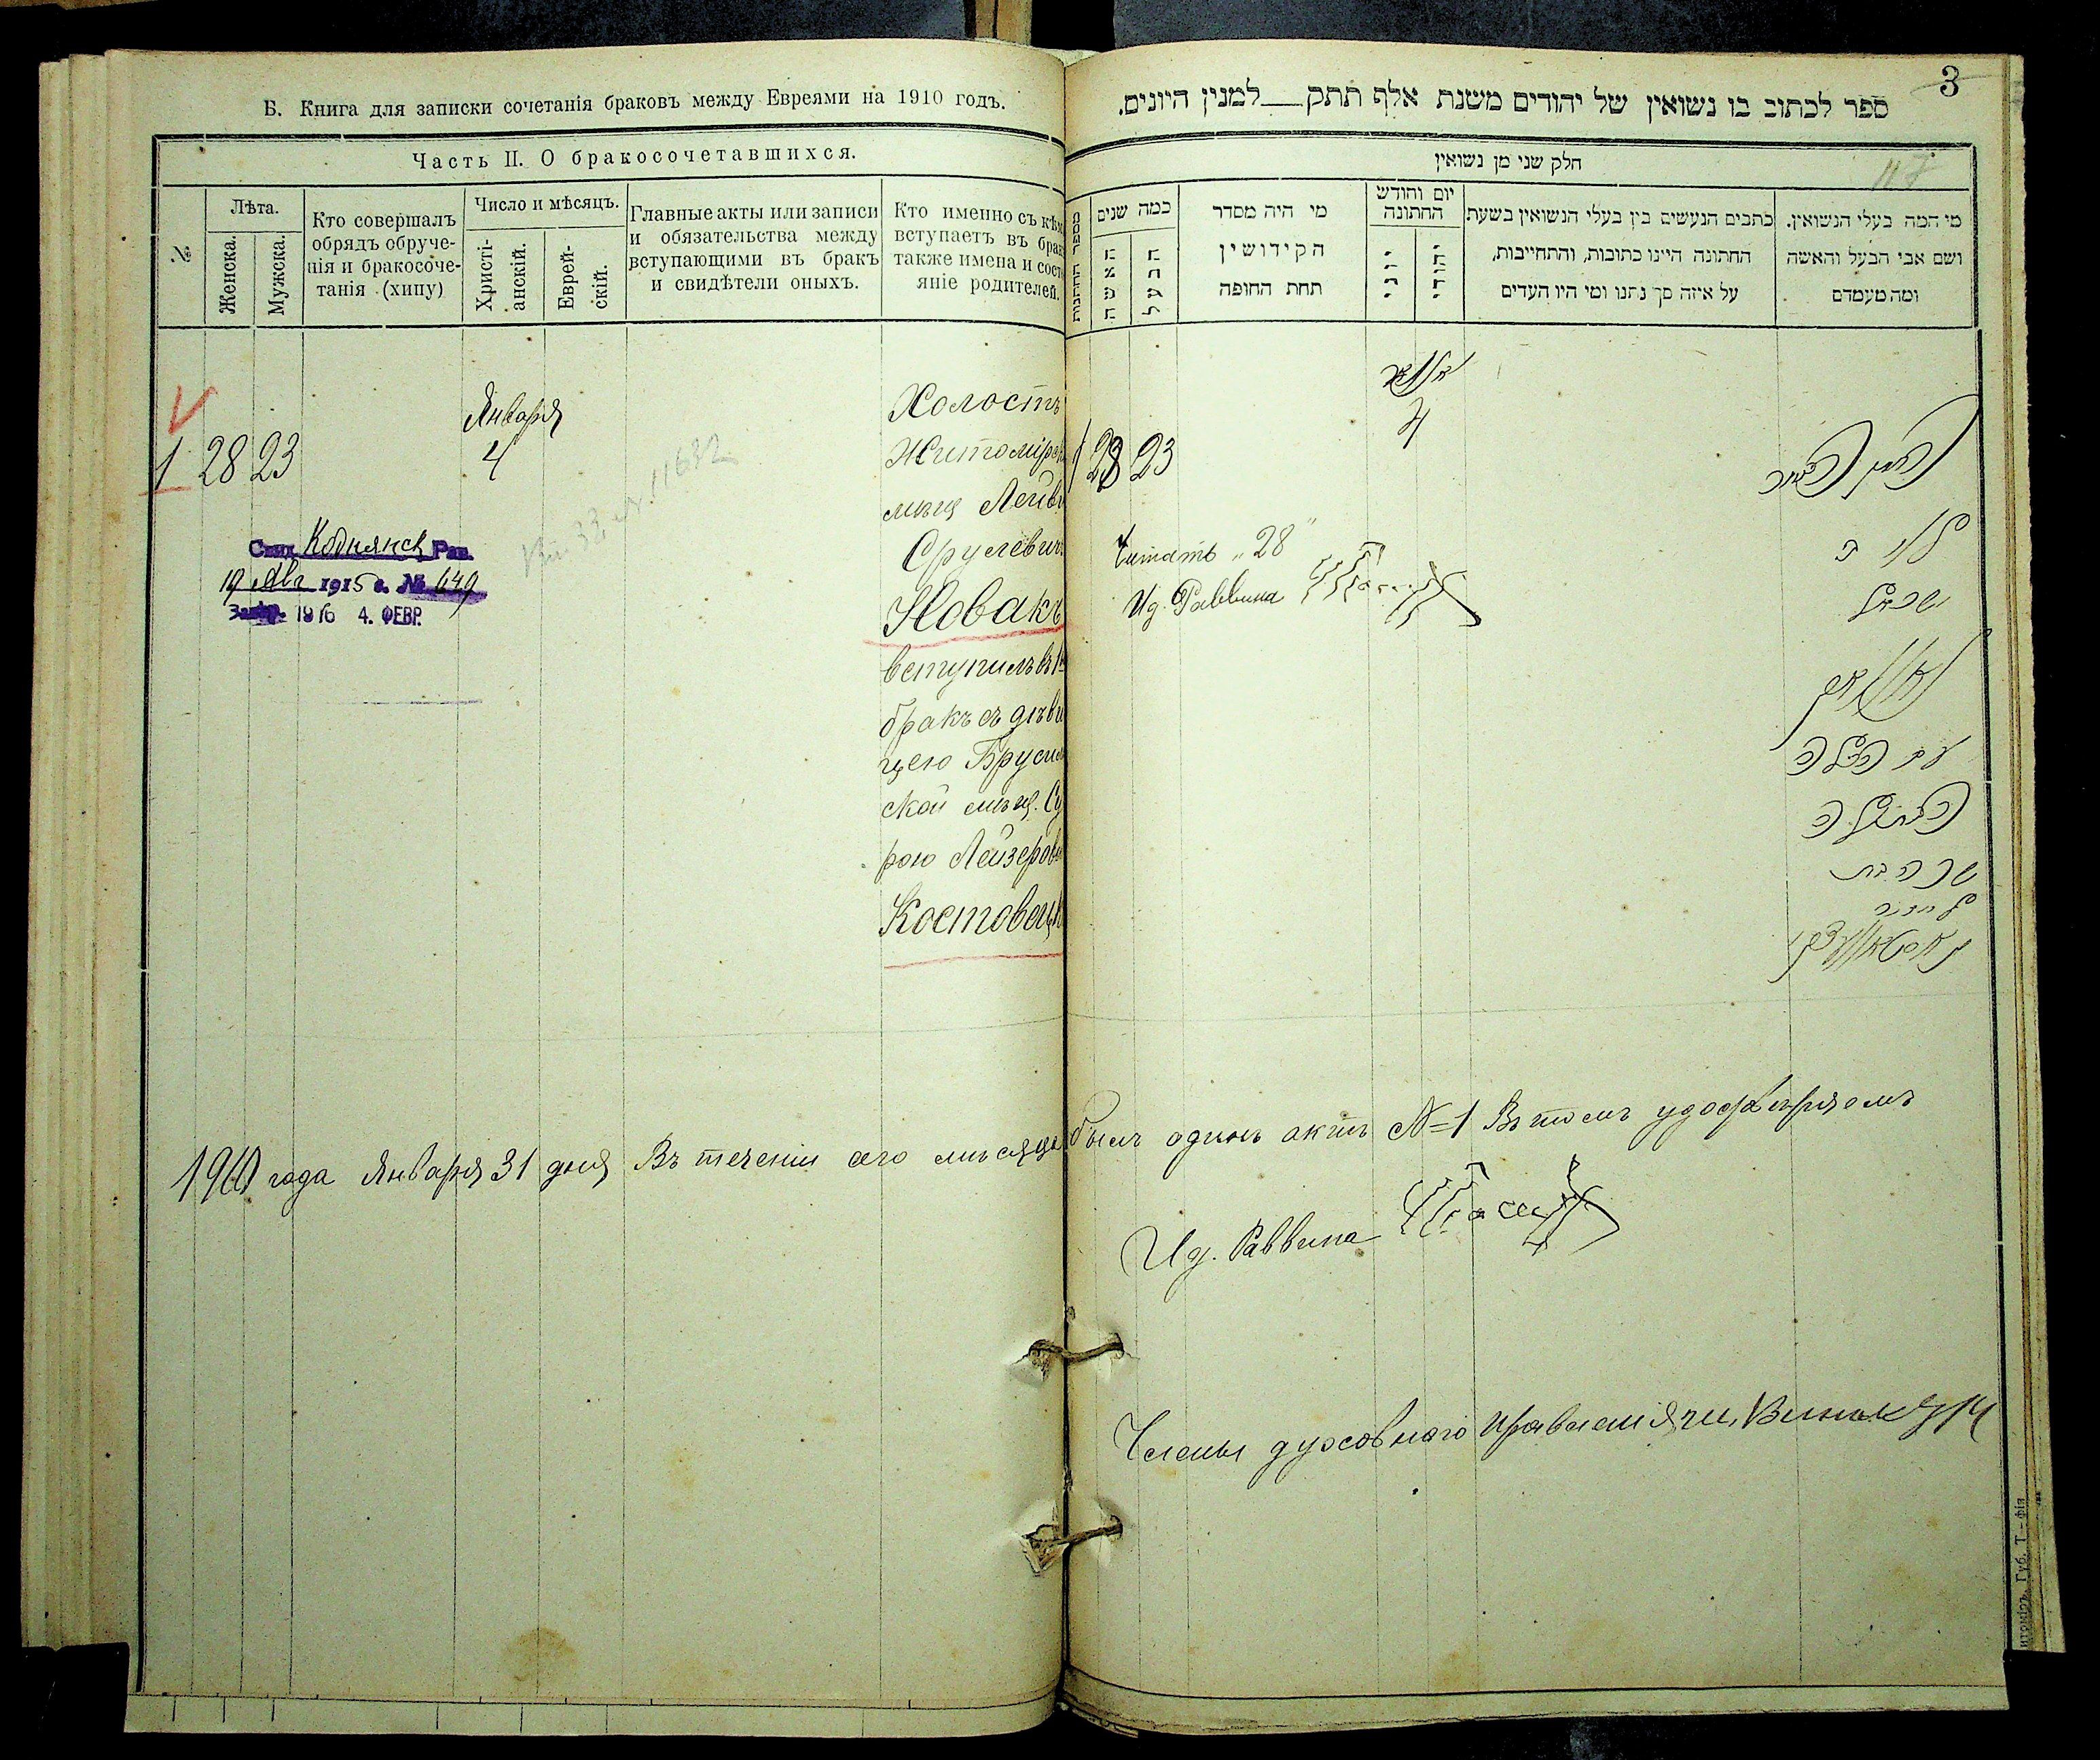 Б. Книга для записки сочетанія браковъ между Евреями на 1910 годъ.
Часть II. О бракосочетавшихся.
№
Лѣта.
Женска.
Мужска.
Кто совершалъ
обрядъ обруче-
нія и бракосоче-
танія (хипу)
Число и мѣсяцъ.
Христі-
анскій.
Еврей-
скій.
Главные акты или записи
и обязательства между
вступающими въ бракъ
и свидѣтели оныхъ.
Кто именно съ кѣм
вступаетъ въ брак
также имена и сост
яніе родителей.
Января
1 28 23 4
Холостъ
Житомірск
мѣщ Лейб
Срулевич
Новакъ
вступилъ въ 1й
бракъ съ дѣви
цею Брусил
ской мѣщ. Су
рою Лейзеров
Костовецк
№ 11632
Свид. Коднянск Рав.
19 Авг 1915 г. № 649
1916 4. ФЕВР.
1910 года Января 31 дня Въ теченіи сего мѣсяца
3
ספר לכתוב בו נשואין של יהודים משנת אלף תתק___למנין היונים.
117
חלק שני מן נשואין
מספר החתונות
כמה שנים
האשה
הבעל
מי היה מסדר
הקידושין
תחת החופה
יום וחודש
החתונה
יוני
יהודי
כתבים הנעשים בין בעלי הנשואין בשעת
החתונה היינו כתובות, והתחייבות,
על איזה סך נתנו ומי היו העדים
מי המה בעלי הנשואין.
ושם אבי הבעל והאשה
ומה מעמדם
1 28 23 4
Читать „28"
Ид. Раввина
שרה בת
былъ одинъ актъ №=1 Въ томъ удостовѣряемъ
Ид. Раввина
Члены духовнаго правленія
итоміръ. Губ. Т—фія